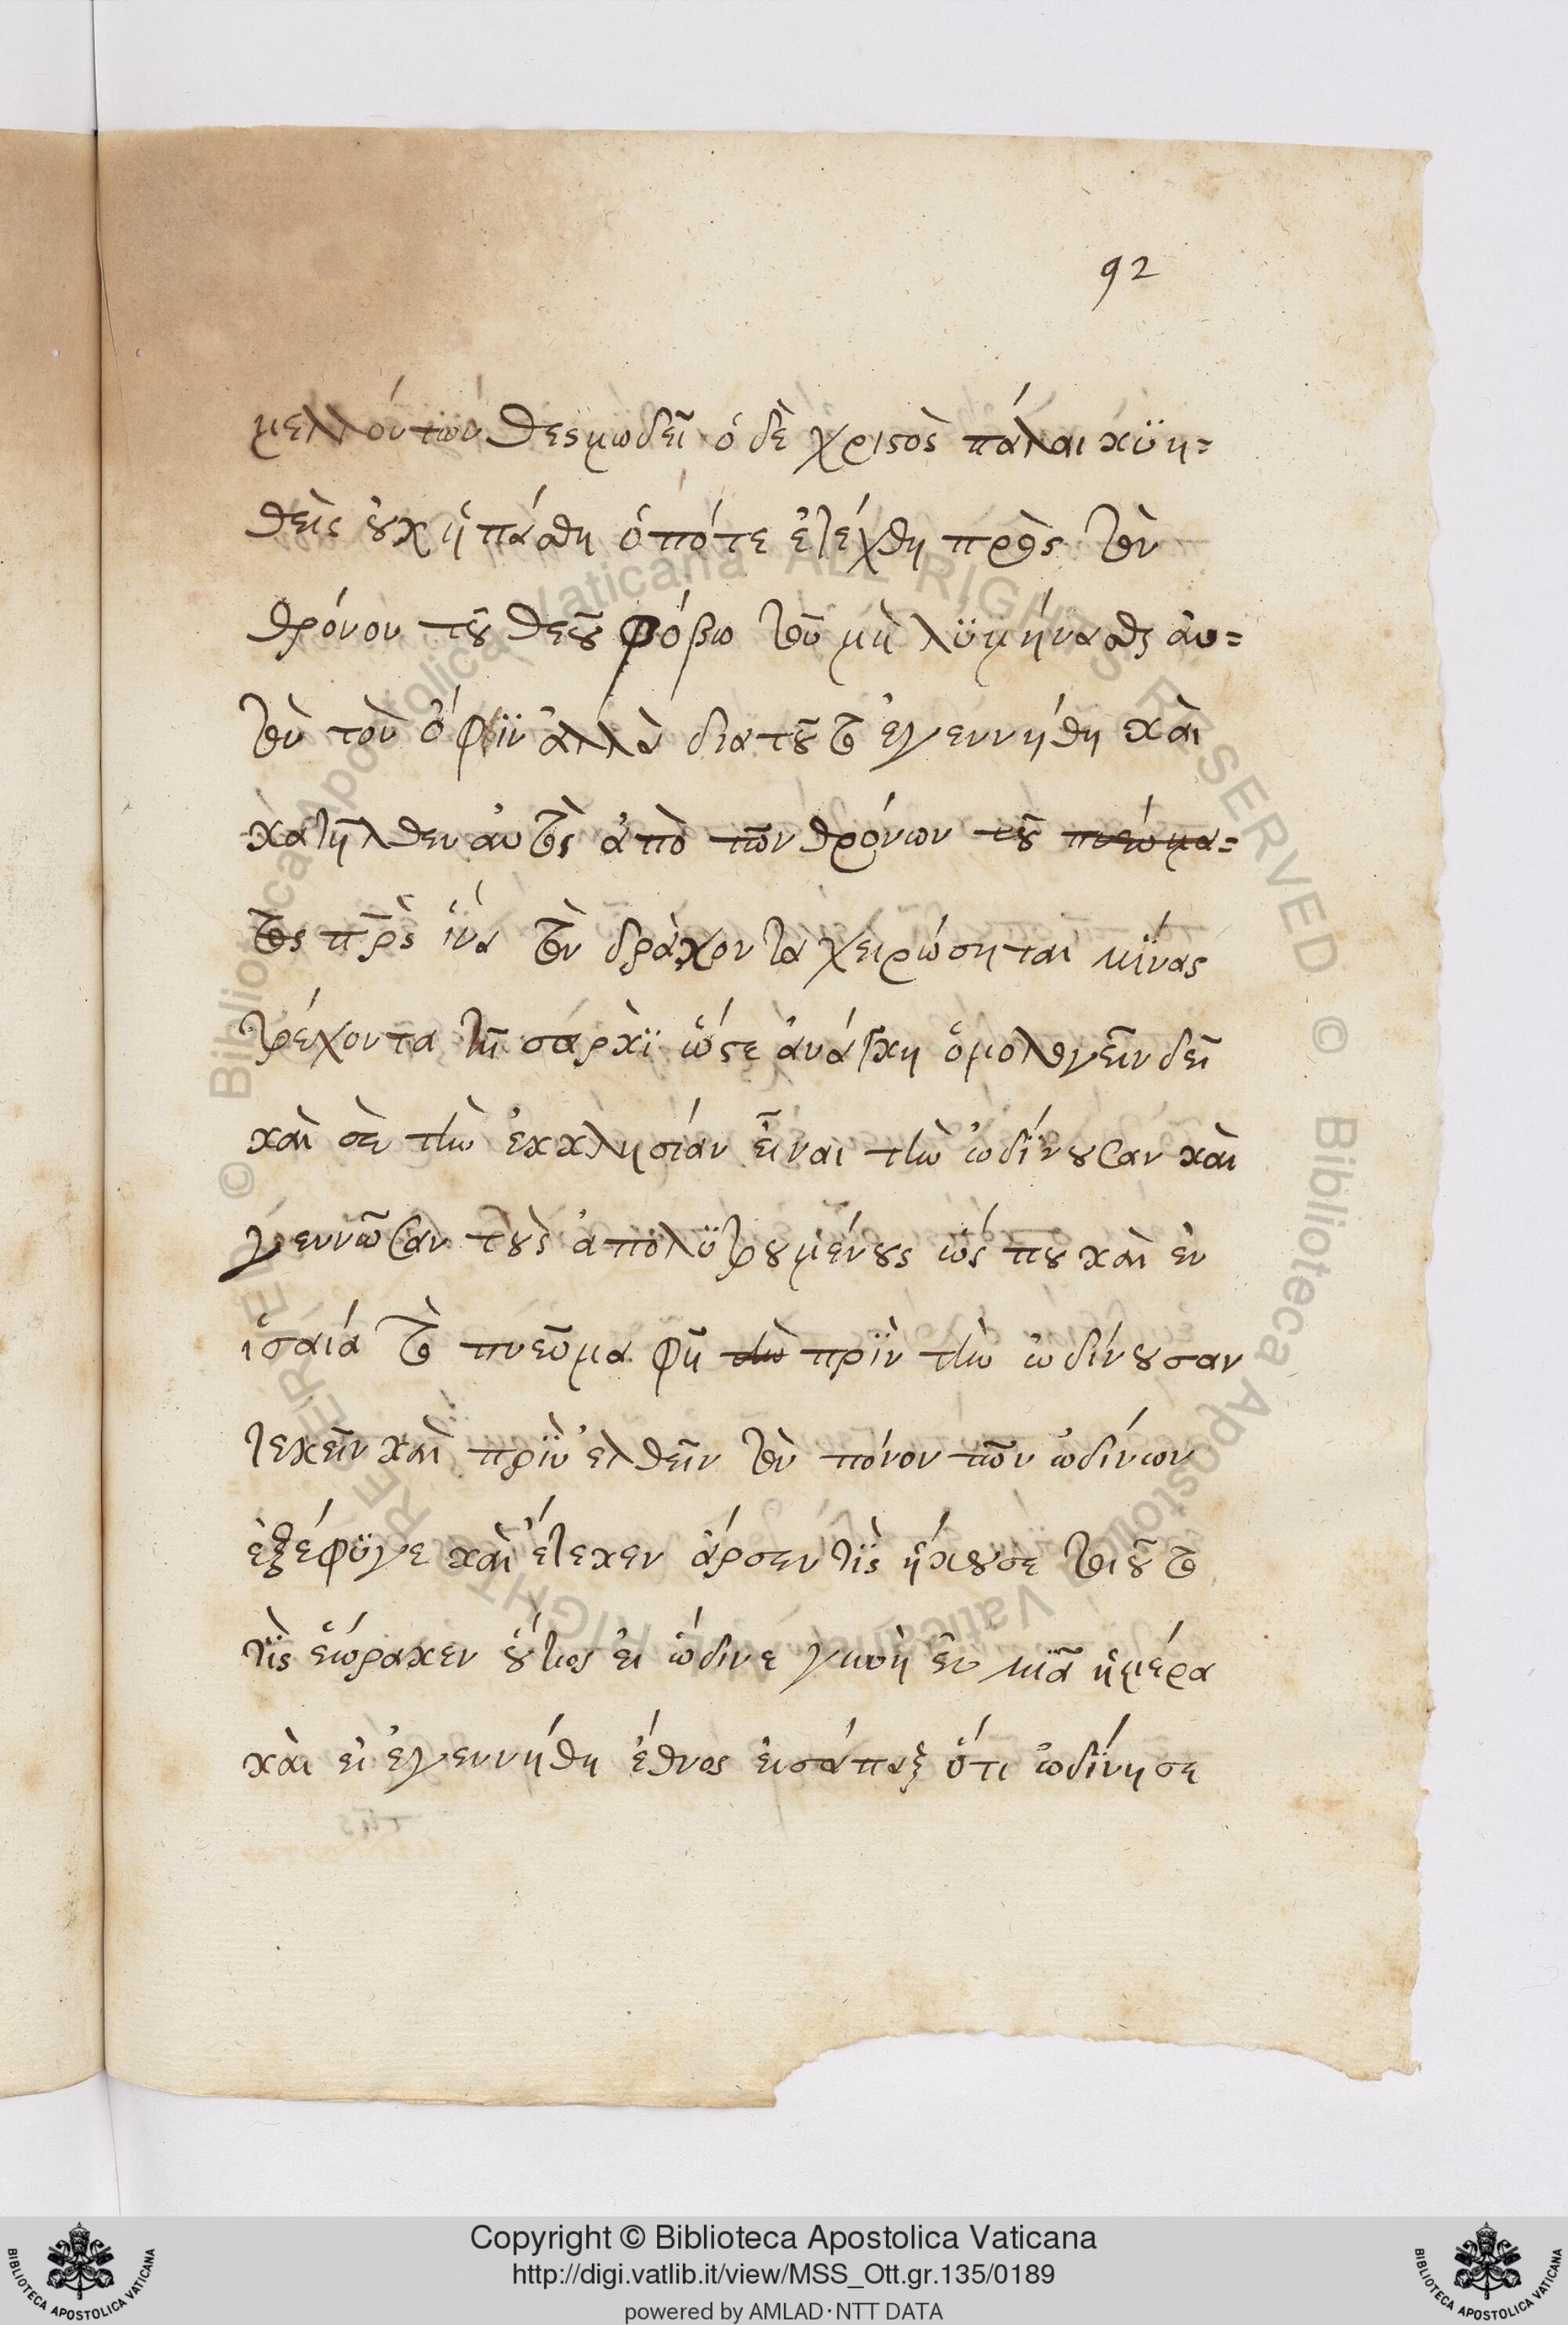 92
μελλόντων θεσμωδεῖ ὁ δὲ χριστὸς πάλαι κϋη=
θεὶς οὐχ ἡπάσθη ὁπότε ἐτέχθη πρὸς τὸν
θρόνον τοῦ θεοῦ φόβω τοῦ μὴ λϋμήνασθαι αυ=
τὸν τὸν ὄφϊν ἀλλὰ διατοῦτο ἐγεννήθη καὶ
κατῆλθεν αὐτὸς ἀπὸ τῶν θρόνων τοῦ πνεύμα=
τος πρς ἵνα τὸν δράκοντα χειρώσηται μϊνας
τρέχοντα τῇ σαρκὶ ὥστε ἀνάγκη ὁμολογεῖν δεῖ
καὶ σὲ τὴν ἐκκλησίαν εἶναι τὴν ὠδίνουσαν καὶ
γεννῶσαν τοὺς ἀπολϋτρουμένους ὥς που καὶ ἐν
ἡσαιά τὸ πνεῦμα φῆ τὴν πρϊν τὴν ὠδίνουσαν
τεκεῖν καὶ πρϊν ἐλθεῖν τὸν πόνον τῶν ὠδίνων
ἐξέφϋγε καὶ ἔτεκεν ἄρσεν τϊς ἤκουσε τοιοῦτο
τϊς ἑώρακεν οὕτως εἰ ὤδινε γυνὴ ἐν μϊᾶ ἡμέρα
καὶ εἰ ἐγεννήθη ἔθνος εἰσάπαξ ὅτι ὠδίνησε
Copyright © Biblioteca Apostolica Vaticana
http://digi.vatlib.it/view/MSS_Ott.gr.135/0189
powered by AMLAD·NTT DATA